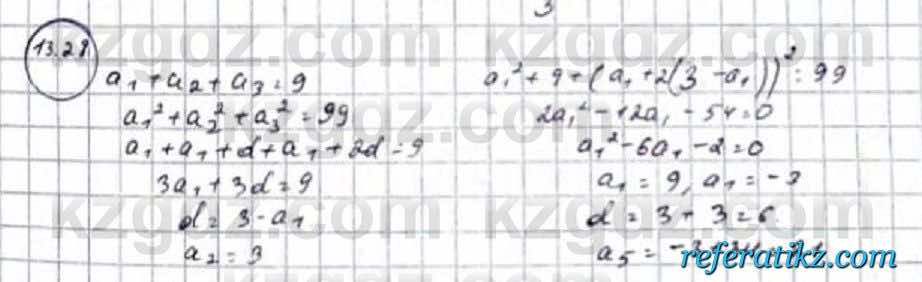 3
13.28
a₁ + a₂ + a₃ = 9
a₁² + a₂² + a₃² = 99
a₁ + a₁ + d + a₁ + 2d = 9
3a₁ + 3d = 9
d = 3 - a₁
a₂ = 3
a₁² + 9 + (a₁ + 2(3 - a₁))² = 99
2a₁² - 12a₁ - 54 = 0
a₁² - 6a₁ - 2 = 0
a₁ = 9, a₁ = -3
d = 3 + 3 = 6
a₅ =
kzgdz.com
kzgdz.com
kzgdz.com
kzgdz.com
referatikz.com